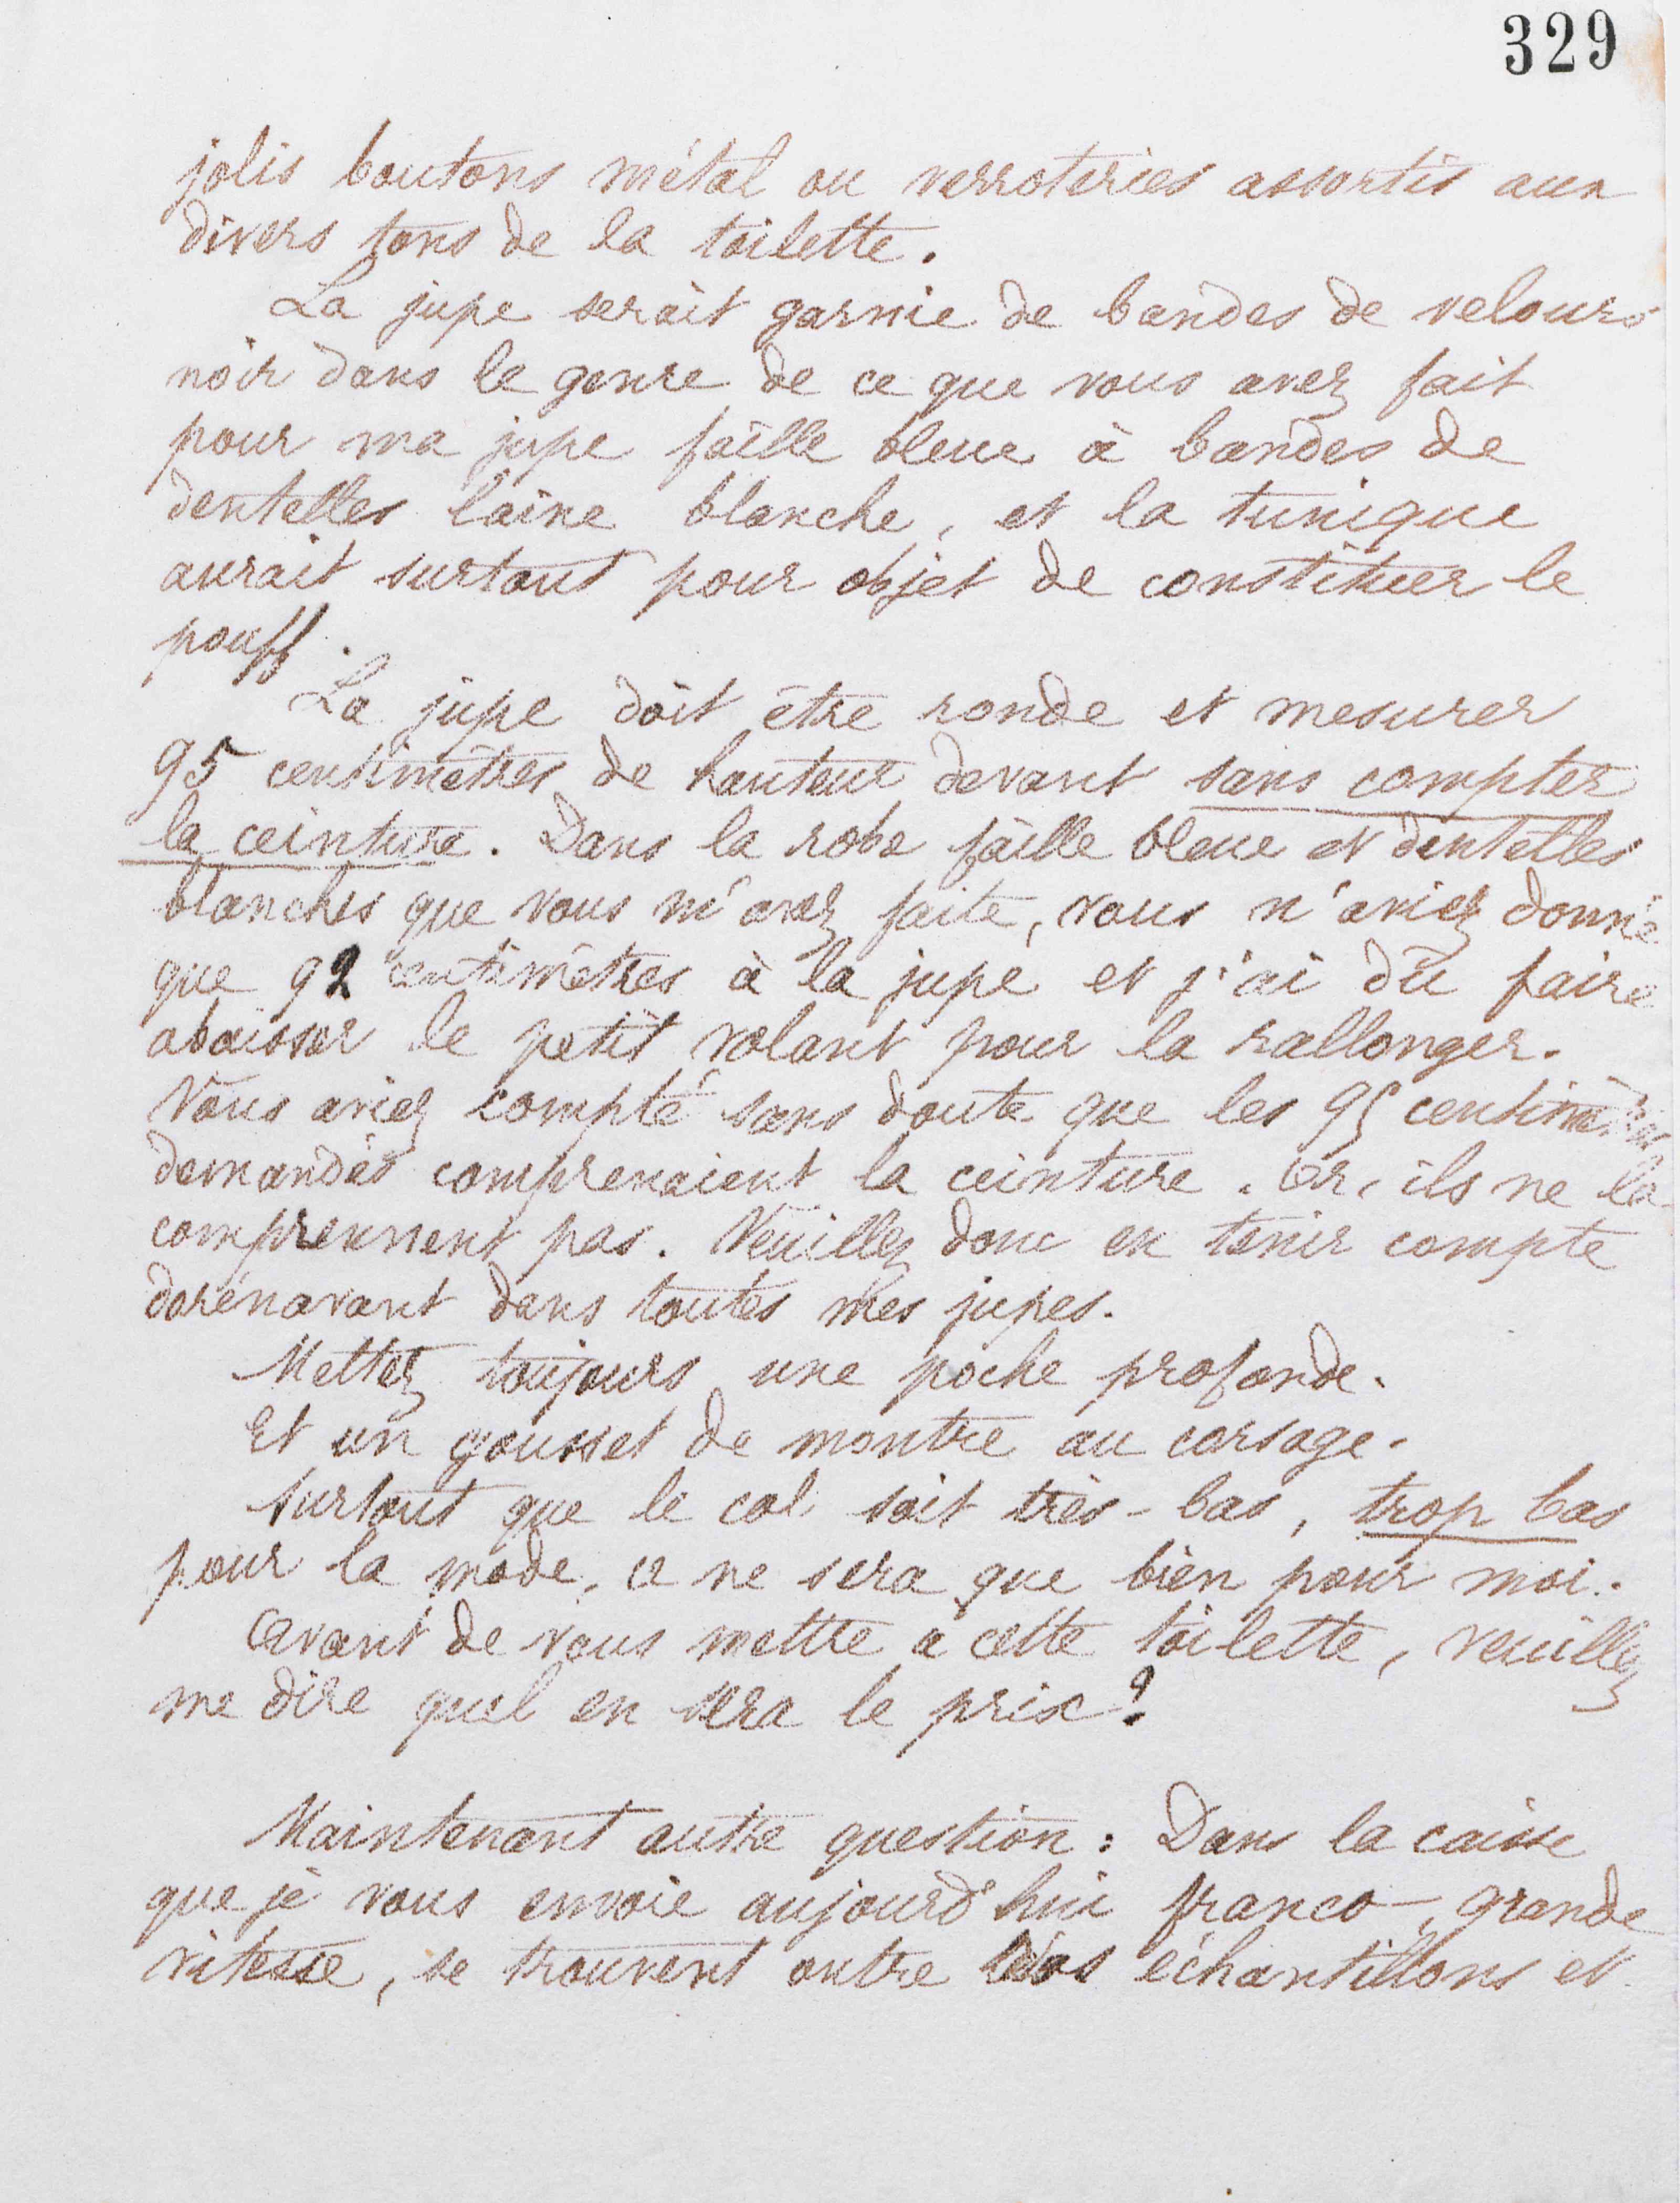 329
jolis boutons métal ou verroteries assortis aux
divers tons de la toilette.
La jupe serait garnie de bandes de velours
noir dans le genre de ce que vous avez fait
pour ma jupe faille bleue à bandes de
dentelles laine blanche, et la tunique
aurait surtout pour objet de constituer le
pouff.
La jupe doit être ronde et mesurer
95 centimètres de hauteur devant sans compter
la ceinture. Dans la robe faille bleue et dentelles
blanches que vous m'avez faite, vous n'aviez donné
que 92 centimètres à la jupe et j'ai dû faire
abaisser le petit volant pour la rallonger.
Vous aviez compté sans doute que les 95 centimètres
demandés comprenaient la ceinture. Or, ils ne la
comprennent pas. Veuillez donc en tenir compte
dorénavant dans toutes mes jupes.
Mettez toujours une poche profonde.
Et un gousset de montre au corsage.
Surtout que le col soit très-bas, trop bas
pour la mode, ce ne sera que bien pour moi.
Avant de vous mettre à cette toilette, veuillez
me dire quel en sera le prix?
Maintenant autre question: Dans la caisse
que je vous envoie aujourd'hui franco, grande
vitesse, se trouvent outre vos échantillons et